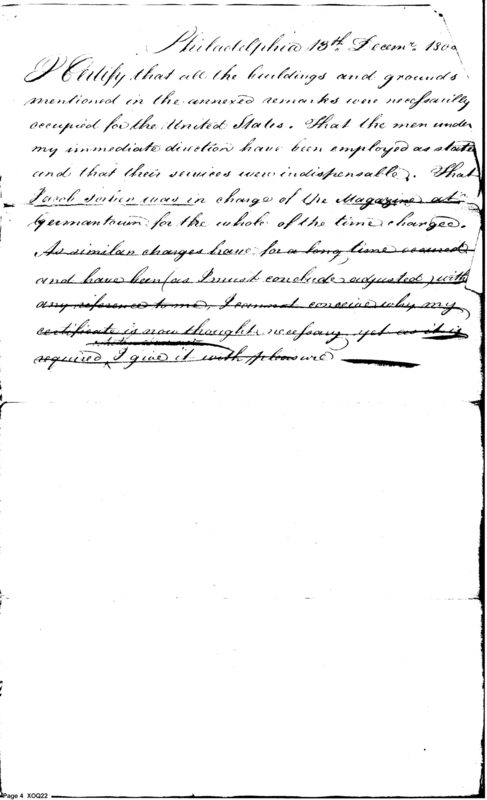 Philadelphia 13th. Decemr. 1800
I Certify that all the buildings and grounds
mentioned in the annexed remarks were necessarily
occupied for the United States. That the men under
my immediate direction have been employed as stated
and that their services were indispensable. That
Jacob was in charge of the Magazine at
Germantown for the whole of the time charged.
As similar charges have for a long time occured
and have been (as I must conclude adjusted) with
any reference to me, I cannot conceive why my
certificate is now thought necessary, yet as it is
required, I give it with pleasure
Page 4 XOQ22